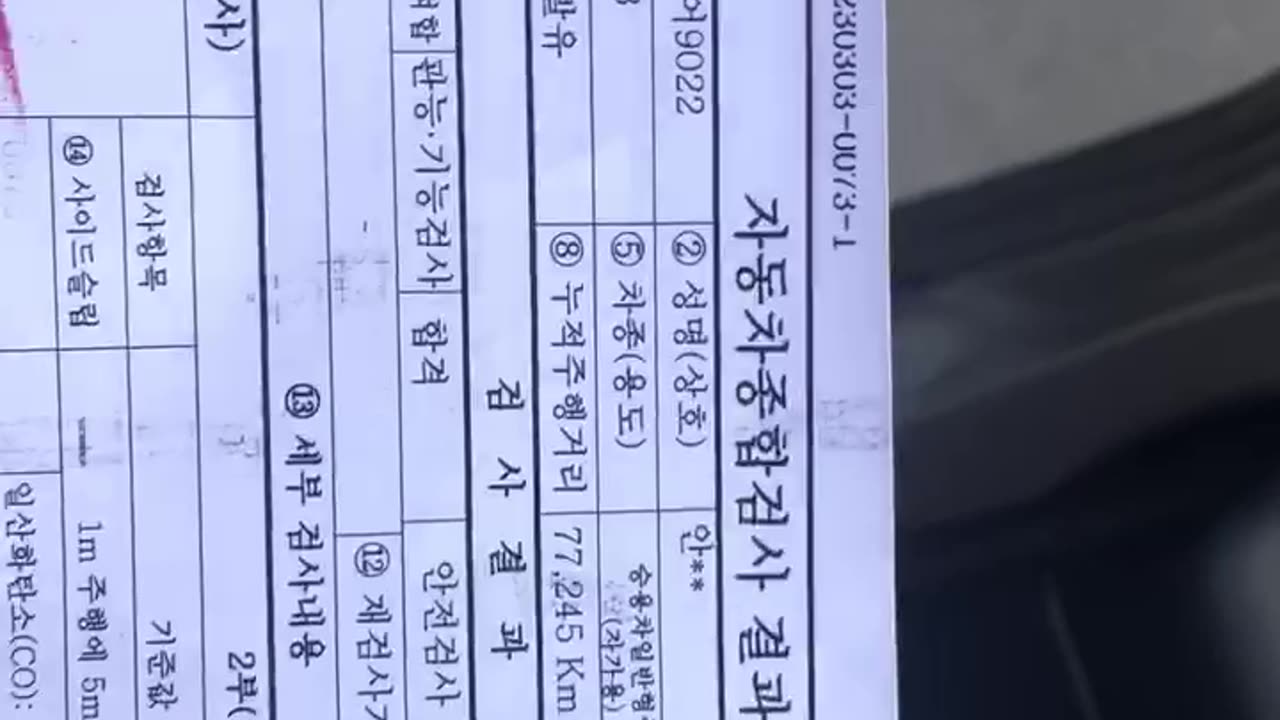 230303-0073-1
자동차종합검사 결과
어9022 ② 성명(상호) 안**
⑤ 차종(용도) 승용차일반형 (자가용)
발유 ⑧ 누적주행거리 77,245 Km
검 사 결 과
관능·기능검사 합격 안전검사
- ⑫ 재검사기
⑬ 세부 검사내용
사) 2부(
검사항목 기준값
⑭ 사이드슬립 1m 주행에 5m
일산화탄소(CO):